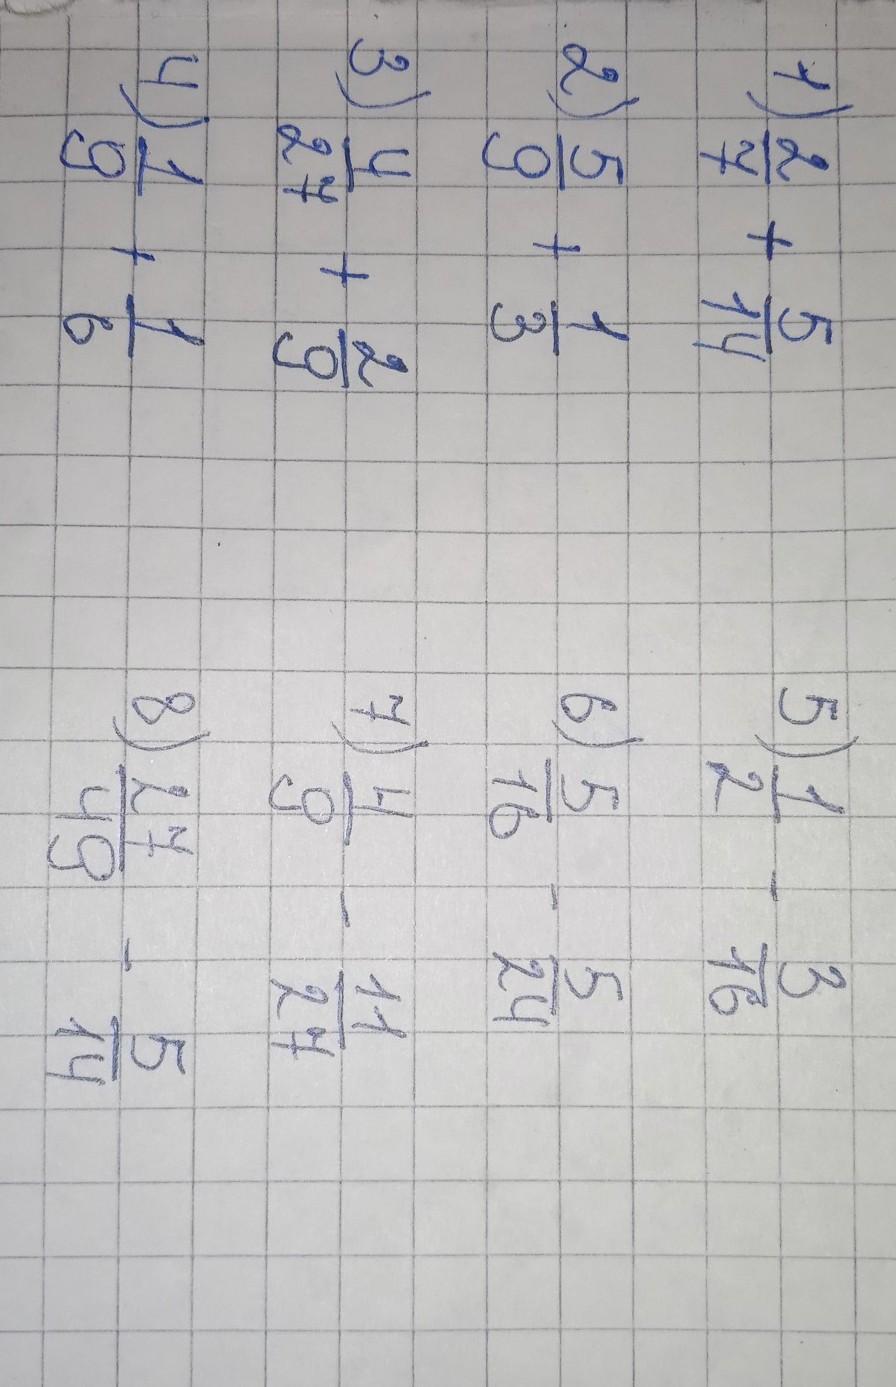 1) 2/7 + 5/14
2) 5/9 + 1/3
3) 4/27 + 2/9
4) 1/9 + 1/6
5) 1/2 - 3/16
6) 5/16 - 5/24
7) 4/9 - 11/27
8) 27/49 - 5/14